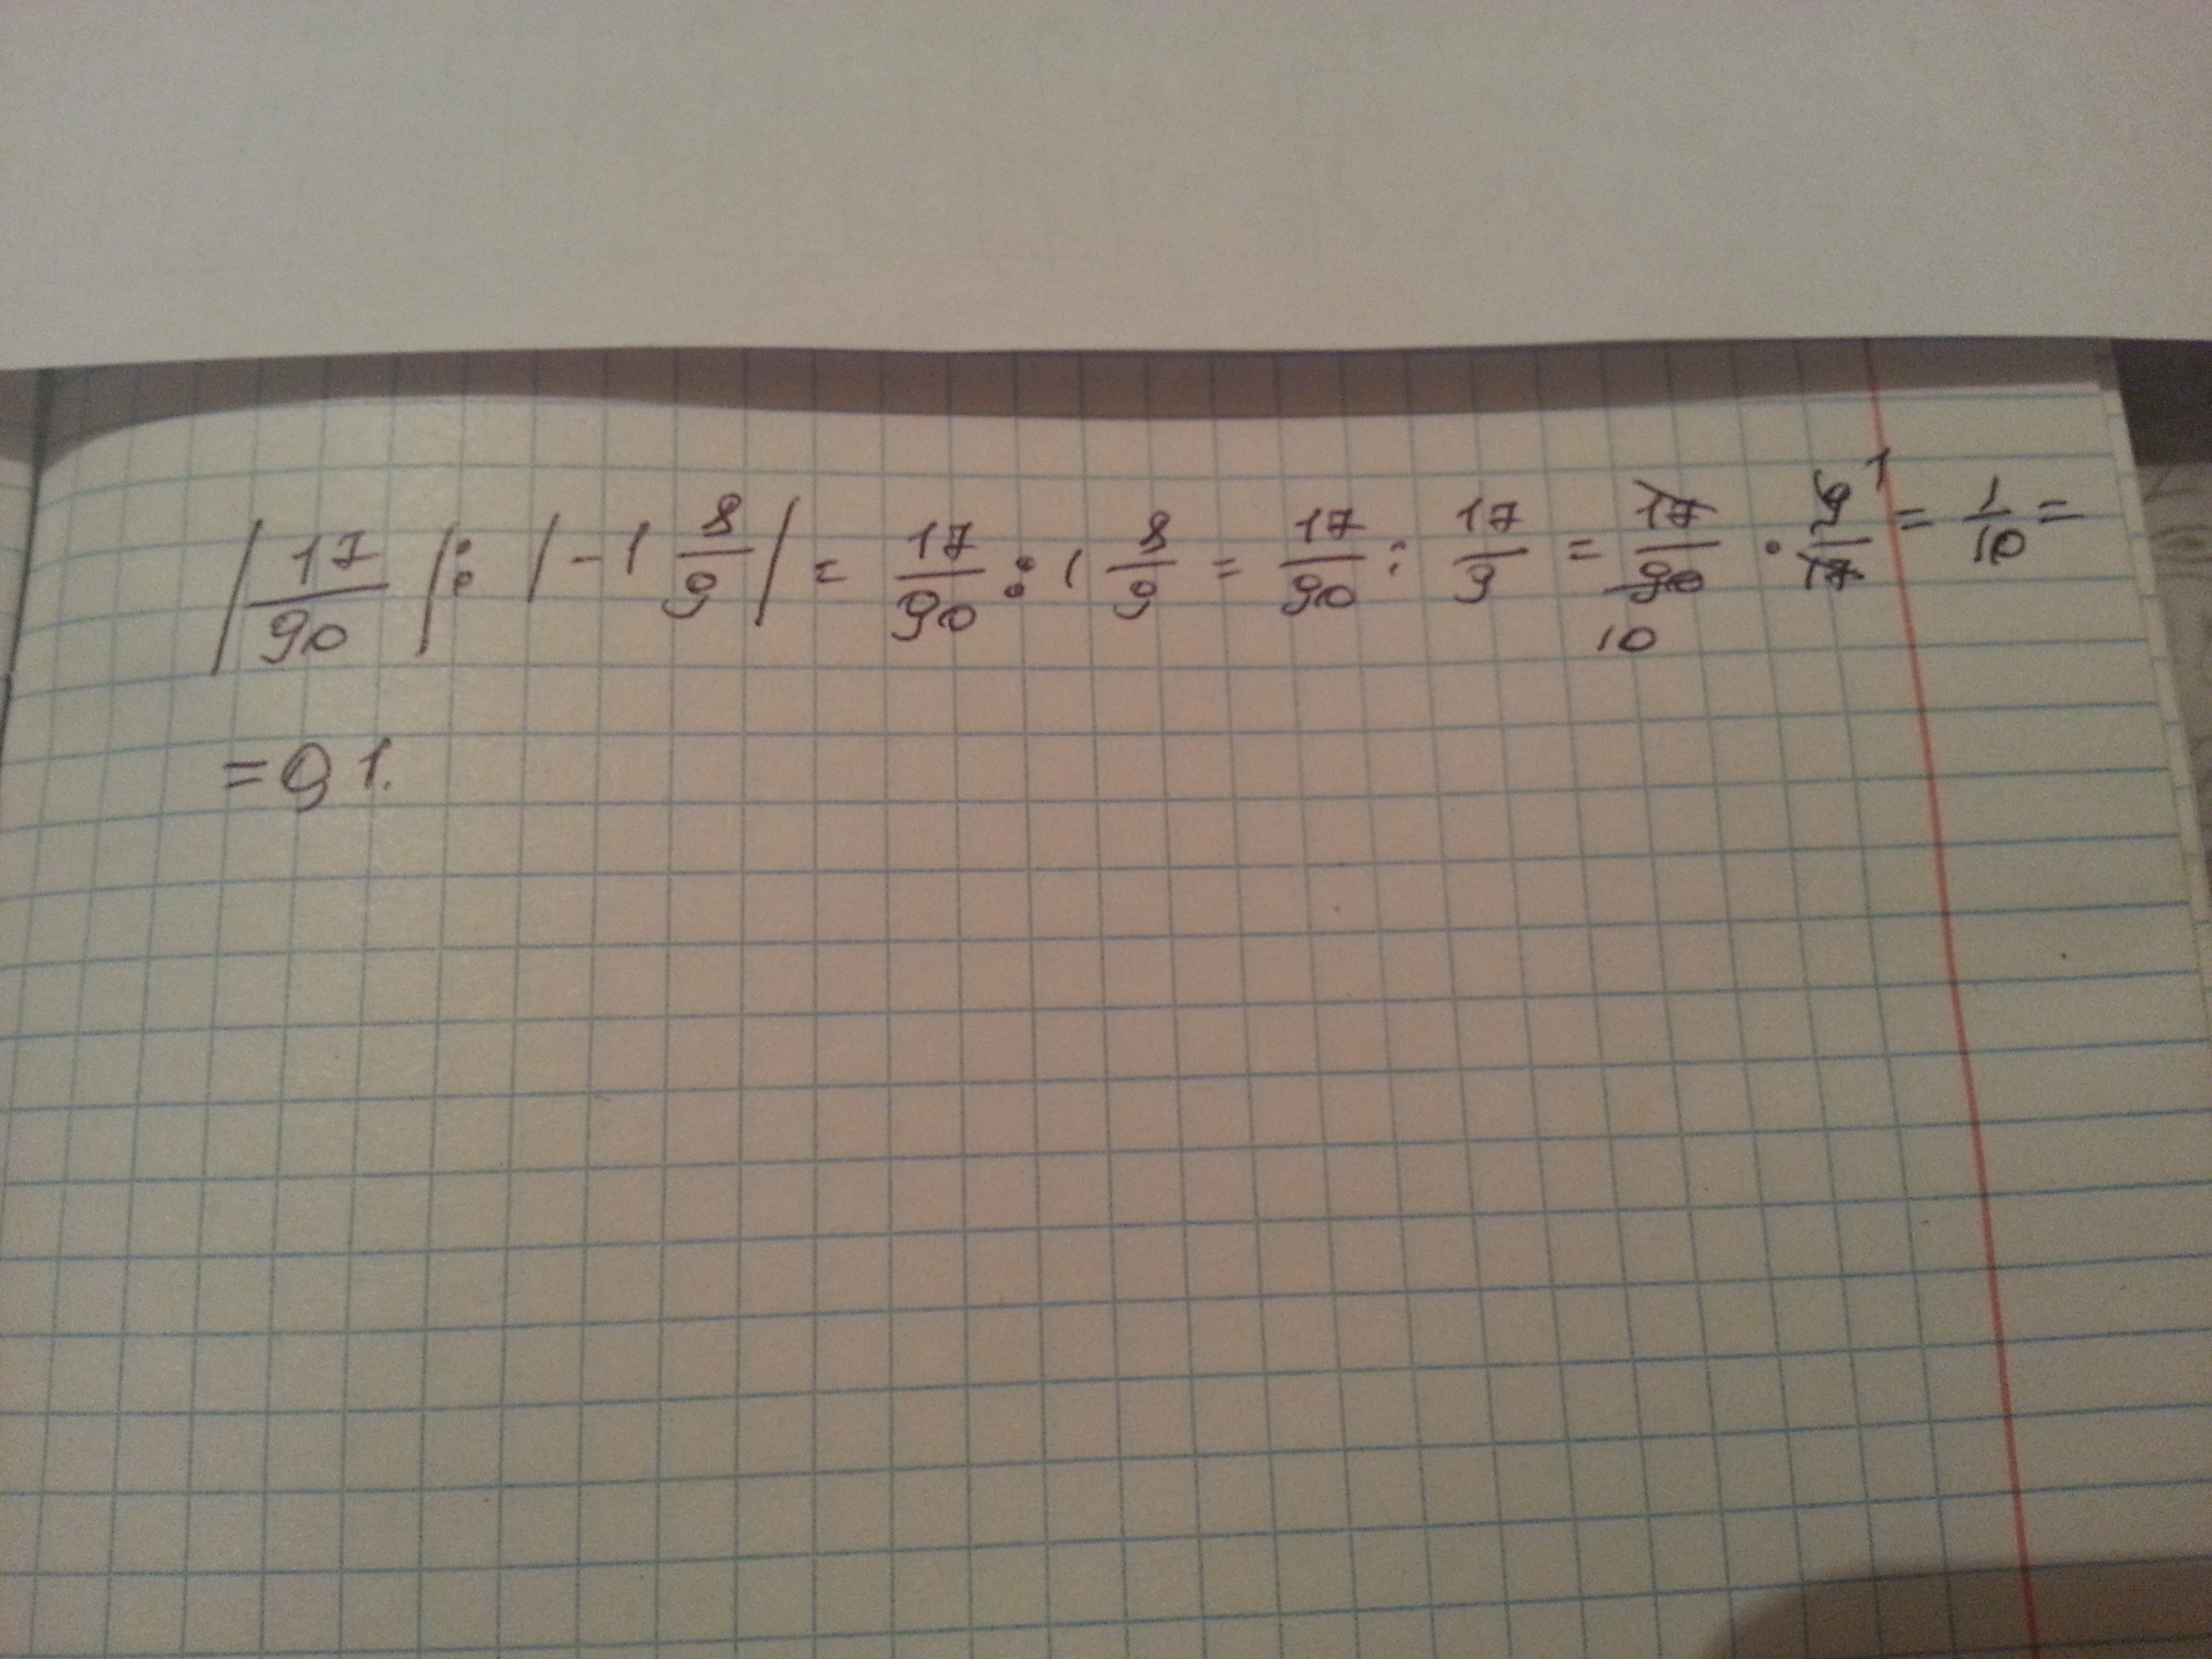 |17/90| : |-1 8/9| = 17/90 : 1 8/9 = 17/90 : 17/9 = 17/90 10 · 9 1/17 = 1/10 =
= 0,1.